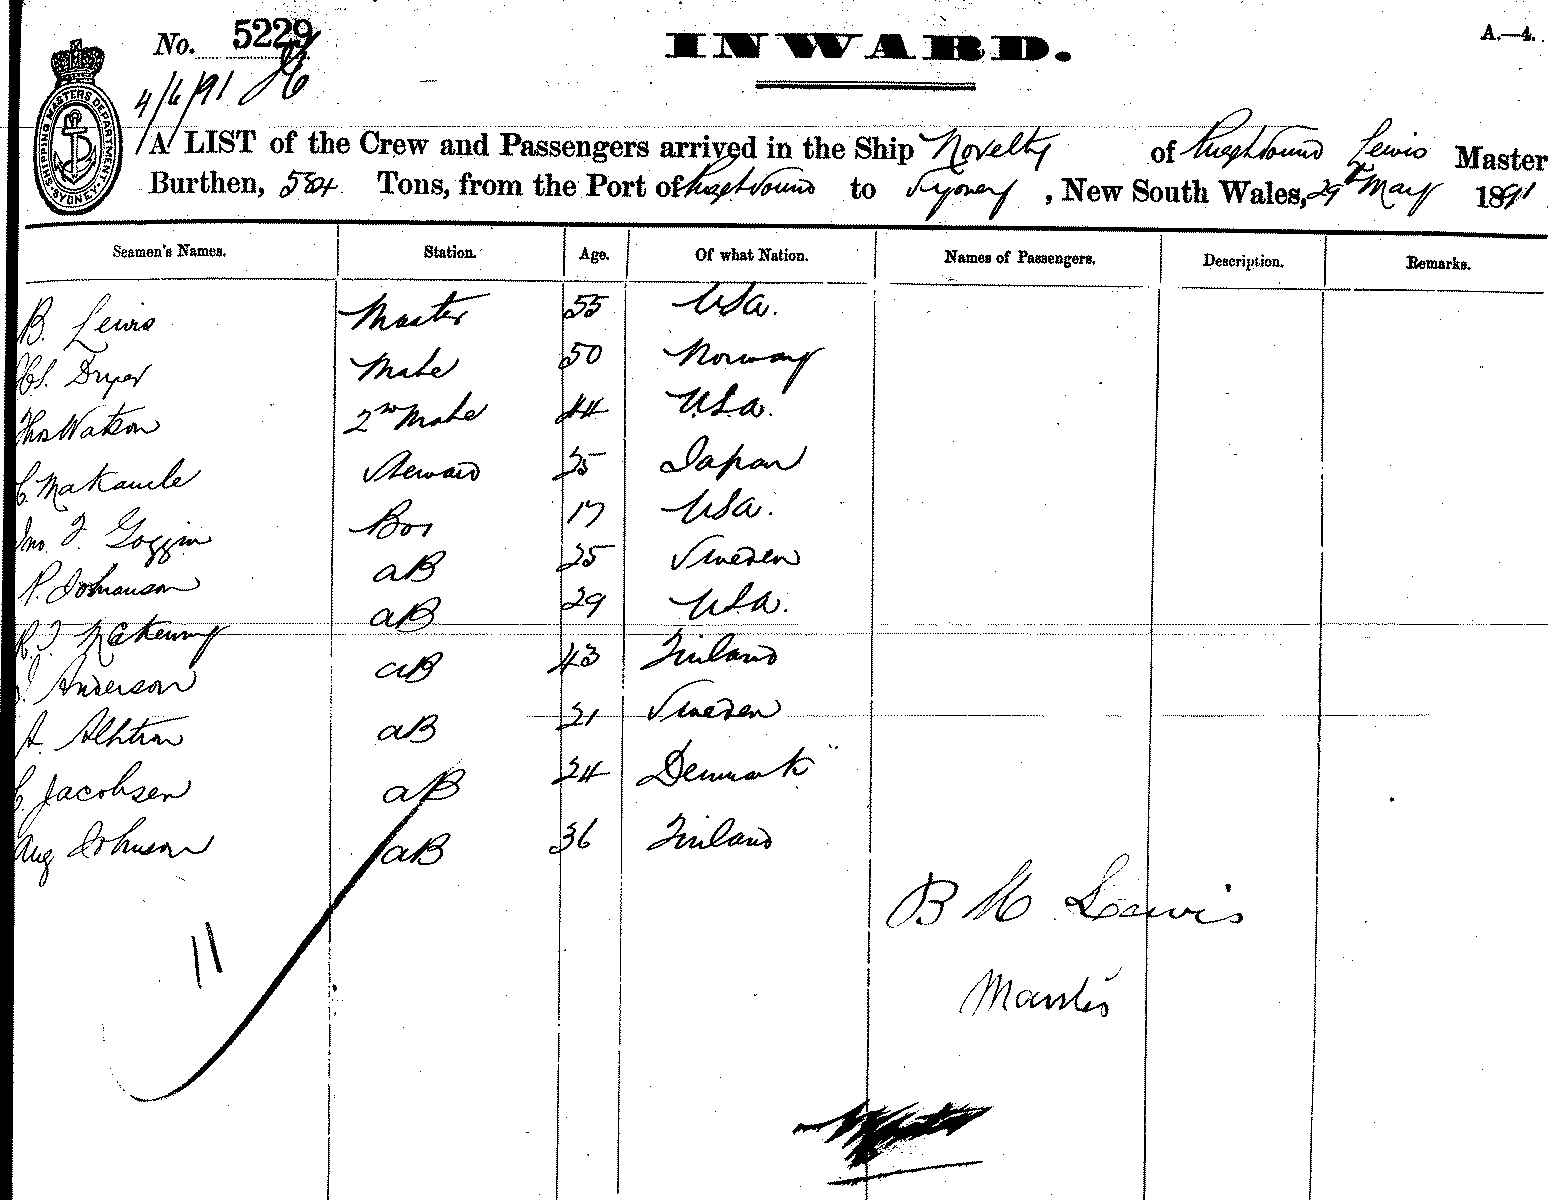 No. 5229
INWARD.
A.—4.
4/6/91
SHIPPING MASTERS DEPARTMENT SYDNEY
A LIST of the Crew and Passengers arrived in the Ship Novelty of Puget Sound Lewis Master
Burthen, 584 Tons, from the Port of Puget Sound to Sydney, New South Wales, 29th May 1891
Seamen's Names. Station. Age. Of what Nation. Names of Passengers. Description. Remarks.
B. Lewis Master 55 USa.
Dryer Mate 50 Norway
Thos Watson 2nd Mate 44 U.S.a.
C. Makamile Steward 25 Japan
Jno. F. Goggin Boy 17 USa.
P. Johhanson aB 25 Sweden
R. J. McKenny aB 29 USa.
J. Anderson aB 43 Finland
A. Alhtrom aB 21 Sweden
C. Jacobsen aB 24 Denmark
Aug Johnson aB 36 Finland
B M Lewis
11
Master